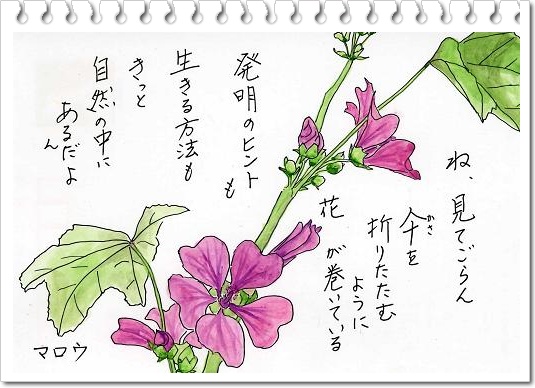 ね、見てごらん
傘を
折りたたむ
ように
花が巻いている
発明のヒントも
生きる方法も
きっと
自然の中に
あるんだよ
マロウ